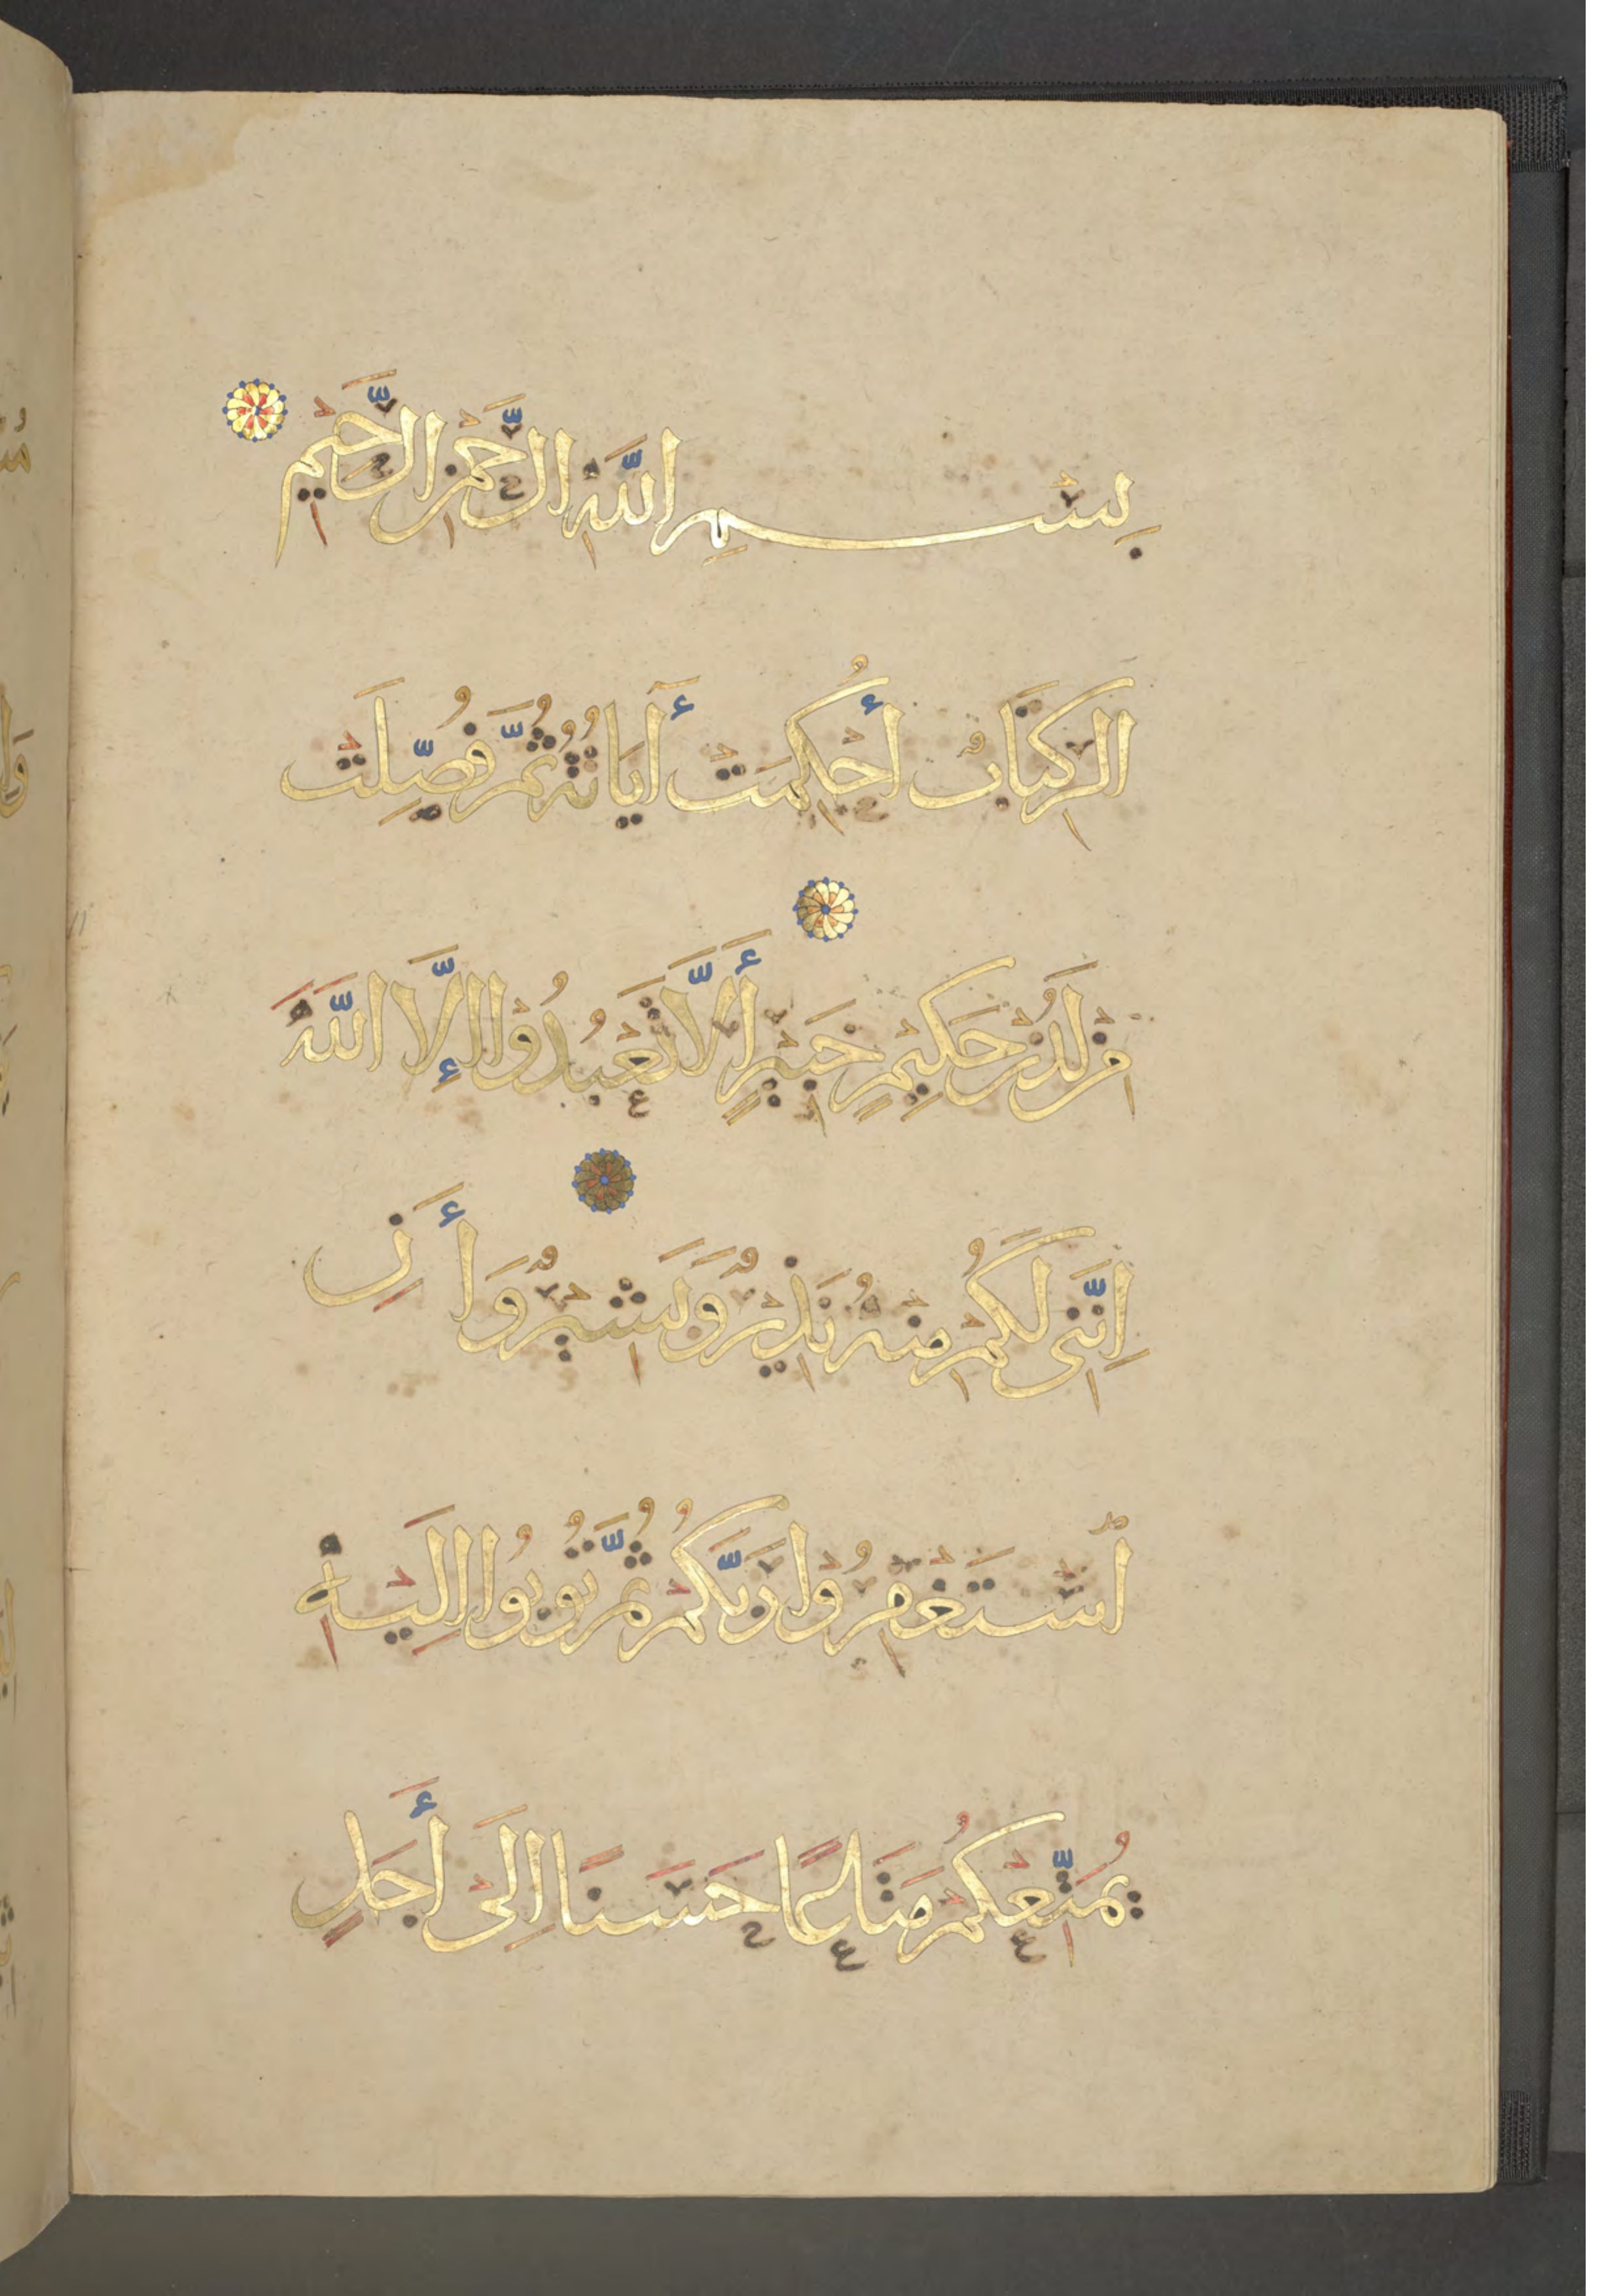 بِسْمِ اللَّهِ الرَّحْمَنِ الرَّحِيمِ
الر كِتَابٌ أُحْكِمَتْ أَيَاتُهُ ثُمَّ فُصِّلَتْ
مِنْ لَدُنْ حَكِيمٍ خَبِيرٍ أَلَّا تَعْبُدُوا إِلَّا اللَّهَ
إِنَّنِى لَكُمْ مِنْهُ نَذِيرٌ وَبَشِيرٌ وَأَنِ
ٱسْتَغْفِرُوا رَبَّكُمْ ثُمَّ تُوبُوا إِلَيْهِ
يُمَتِّعْكُمْ مَتَاعًا حَسَنًا إِلَى أَجَلٍ